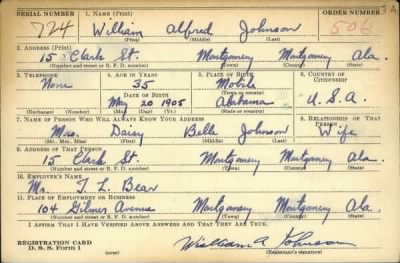 SERIAL NUMBER 1. NAME (Print) ORDER NUMBER
724 William Alfred Johnson 506
(First) (Middle) (Last)
2. ADDRESS (Print)
15 Clark St. Montgomery Montgomery Ala.
(Number and street or R. F. D. number) (Town) (County) (State)
3. TELEPHONE 4. AGE IN YEARS 5. PLACE OF BIRTH 6. COUNTRY OF CITIZENSHIP
None 35 Mobile
DATE OF BIRTH (Town or county)
May 20 1905 Alabama U.S.A.
(Exchange) (Number) (Mo.) (Day) (Yr.) (State or country)
7. NAME OF PERSON WHO WILL ALWAYS KNOW YOUR ADDRESS 8. RELATIONSHIP OF THAT PERSON
Mrs. Daisy Belle Johnson Wife
(Mr., Mrs., Miss) (First) (Middle) (Last)
9. ADDRESS OF THAT PERSON
15 Clark St. Montgomery Montgomery Ala.
(Number and street or R. F. D. number) (Town) (County) (State)
10. EMPLOYER'S NAME
Mr. T. L. Bear
11. PLACE OF EMPLOYMENT OR BUSINESS
104 Gilmer Avenue Montgomery Montgomery Ala.
(Number and street or R. F. D. number) (Town) (County) (State)
I AFFIRM THAT I HAVE VERIFIED ABOVE ANSWERS AND THAT THEY ARE TRUE.
REGISTRATION CARD William A Johnson
D. S. S. Form 1 (over) (Registrant's signature)